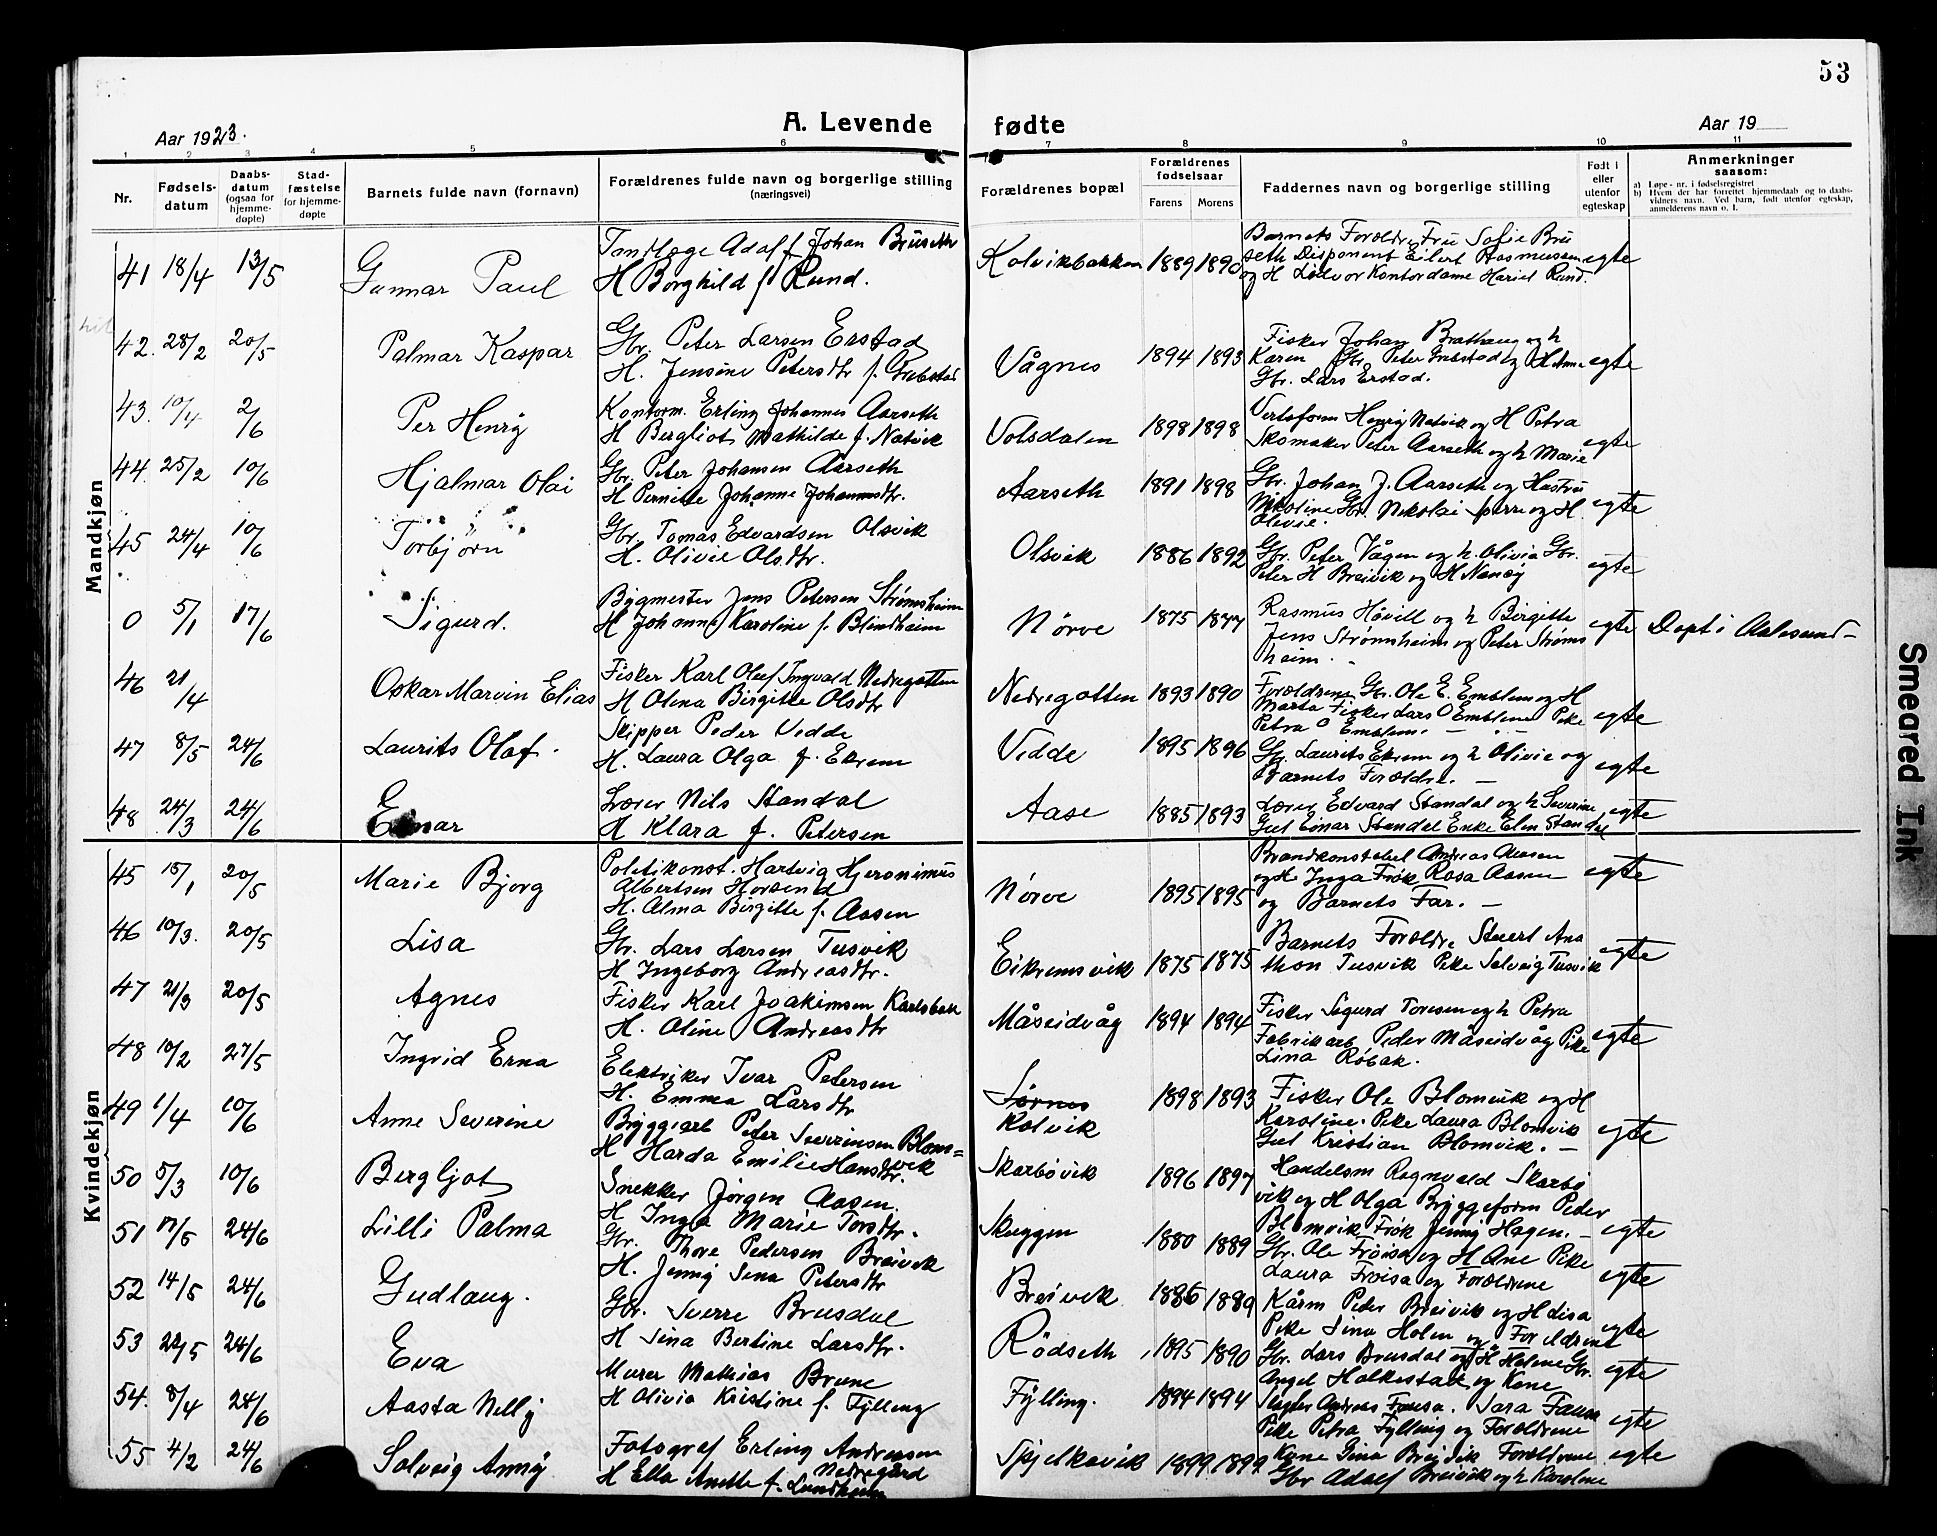 53
Aar 1923.
A. Levende fødte
Aar 19
1 2 3 4 5 6 7 8 9 10 11
Nr.
Fødsels-
datum
Daabs-
datum
(ogsaa for
hjemme-
døpte)
Stad-
fæstelse
for hjemme-
døpte
Barnets fulde navn (fornavn)
Forældrenes fulde navn og borgerlige stilling
(næringsvei)
Forældrenes bopæl
Forældrenes
fødselsaar
Farens Morens
Faddernes navn og borgerlige stilling
Født i
eller
utenfor
egteskap
Anmerkninger
saasom:
a) Løpe-nr. i fødselsregistret
b) Hvem der har forrettet hjemmedaab og to daabs-
vidners navn. Ved barn, født utenfor egteskap,
anmelderens navn o. l.
Mandkjøn
41 18/4 13/5 Gunnar Paul
Tandlæge Adolf Johan Bruseth
H Borghild f Rund.
Kolvikbakken 1889 1890
Barnets Forældre Fru Sofie Bru
seth Disponent Eilert Rasmussen
og H Lilevor Kontordame Hariet Rund. egte
42. 28/2 20/5 Palmar Kaspar
Gbr. Peter Larsen Erstad
H. Jensine Petersdtr f. Grebstad
Vågnes 1894 1893
Fisker Johan Brathaug og h
Karen Gbr. Peter Grebstad og H Anne
Gbr. Lars Erstad. egte
43. 10/4 2/6 Per Henry
Kontorm. Erling Johannes Aarseth
H Bergliot Mathilde f. Natvik
Volsdalen 1898 1898
Henry Natvik og H Petra
Skomaker Peter Aarseth og h Marie egte
44. 25/2 10/6 Hjalmar Olai
Gbr. Peter Johansen Aarseth
H Pernille Johanne Johannesdtr.
Aarseth 1891 1898
Gbr. Johan J. Aarseth og Hustru
Nikoline Gbr. Nikolai Sperre og H.
Olivie. egte
45 24/4 10/6 Torbjørn
Gbr. Tomas Edvardsen Olsvik
H. Olivie Olsdtr.
Olsvik 1886 1892
Gbr. Peter Vågen og h. Olivia Gbr.
Peter H Breivik og H Nancy egte
0 5/1 17/6 Sigurd.
Bygmester Jens Petersen Strømsheim
H Johanne Karoline f. Blindheim
Nørve 1875 1877
Rasmus Høvill og h Birgitte
Jens Strømsheim og Peter Strøms
heim. egte Døpt i Aalesund –
46 21/4 Oskar Marvin Elias
Fisker Karl Oluf Ingvald Nedregotten
H Olena Birgitte Olsdtr
Nedregotten 1893 1890
Forældrene Gbr. Ole E. Emblem og H
Marta Fisker Lars O Emblem Pike
Petra O Emblem. – " – egte
47 8/5 24/6 Laurits Olaf.
Skipper Peder Vedde
H. Laura Olga f. Ekrem
Vedde 1895 1896
Gbr. Laurits Ekrem og h Olivie og
Barnets Forældre. – egte
48 24/3 24/6 Einar
Lærer Nils Standal
H Klara f. Petersen
Aase 1885 1893
Lærer Edvard Standal og h Severine
Gut Einar Standal Enke Elen Standal egte
Kvindekjøn
45 15/1 20/5 Marie Bjorg
Politikonst. Hartvig Hjeronimus
Albertsen Horsend
H. Alma Birgitte f. Aasen
Nørve 1895 1895
Brandkonstabel Andreas Aasen
og H. Inga Frøk Rosa Aasen
og Barnets Far. – egte
46 10/3. 20/5 Lisa
Gbr. Lars Larsen Tusvik
H Ingeborg Andreasdtr.
Eikremsvik 1875 1875
Barnets Forældre Stuert Ana
thon Tusvik Pike Solveig Tusvik egte
47 21/3 20/5 Agnes
Fisker Karl Joakimsen Karlsbak
H. Oline Andreasdtr
Måseidvåg 1894 1894
Fisker Sigurd Toresen og h Petra
Fabrikarb Peder Måseidvåg Pike
Lina Røbak. egte
48 10/2 27/5 Ingrid Erna
Elektriker Ivar Petersen
H. Emma Larsdtr
Sørnes
49 1/4 10/6 Anne Severine
Bryggearb Peder Severinsen Bloms=
vik
H Harda Emilie Hansdtr.
Kolvik 1898 1893
Fisker Ole Blomvik og H
Karoline. Pike Laura Blomvik
Gut Kristian Blomvik. – egte
50 5/3 10/6 Bergljot
Snekker Jørgen Aasen.
H Inga Marie Torsdtr.
Skarbøvik 1896 1897
Handelsm Ragnvald Skarbø
vik og H Olga Bryggeform Peder
Blomvik Frøk Jenny Hagen. – egte
51 17/5 24/6 Lilli Palma
Gbr. Thore Pedersen Breivik
H. Jenny Sena Petersdtr
Skuggen 1880 1889
Gbr. Ole Frøisa og H Ane Pike
Laura Frøisa og Forældrene egte
52 14/5 24/6 Gudlaug.
Gbr. Sverre Brusdal
H Sina Bertine Larsdtr.
Breivik 1886 1889
Kårm Peter Breivik og H Lisa
Pike Sina Holen og Forældrene egte
53 22/5 24/6 Eva
Murer Mathias Brune
H Olivia Kristine f. Fylling
Rødseth 1895 1890
Gbr. Lars Brusdal og H Helene Gbr.
Angel Holkestad og Kone egte
54. 8/4 24/6 Aasta Nelly
Fylling. 1894 1894
Slagter Andreas Fausa. Sara Fausa
Pike Petra Fylling og Forældrene egte
55 4/2 24/6 Solveig Anny
Fotograf Erling Andersen
Nedregård
H Ella Anette f. Lundheim
Spjelkavik 1899 1899
Kone Gina Breivik Forældrene
Gbr Adolf Breivik og h Karoline egte
Smeared Ink